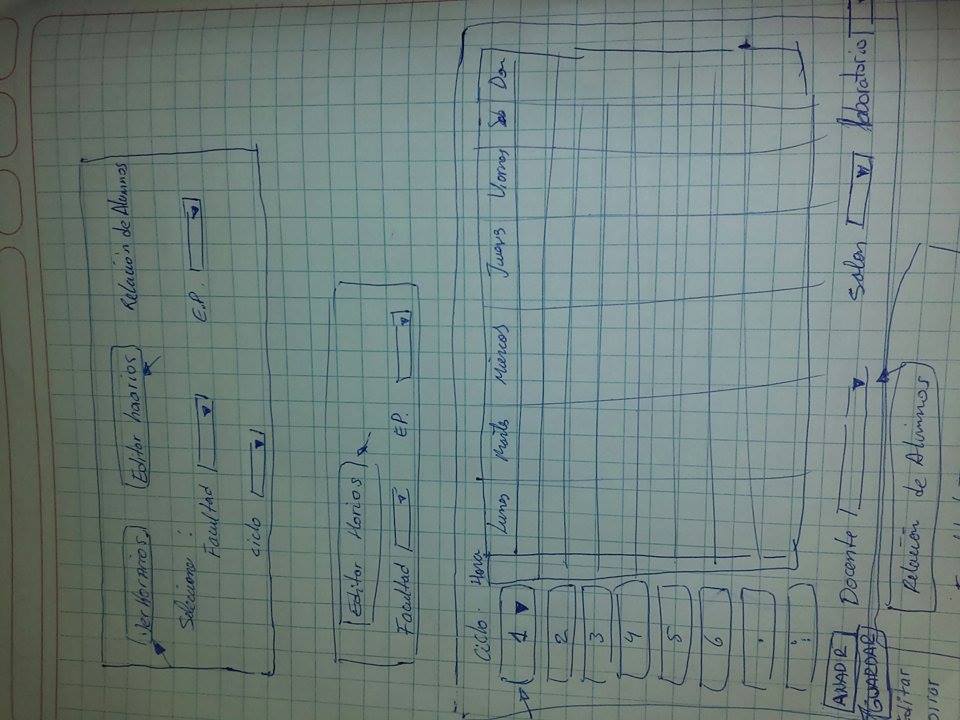 Ver Horarios Editar haarios Relación de Alumnos
Seleccione :
Facultad E.P.
ciclo
Editar Horios
Facultad EP.
Ciclo Hora
Lunes Martes Miercos Jueves Viernes Sab Dom
1
2
3
4
5
6
.
⋮
AÑADIR Docente Salon laboratorio
GUARDAR
Editar Relación de Alumnos